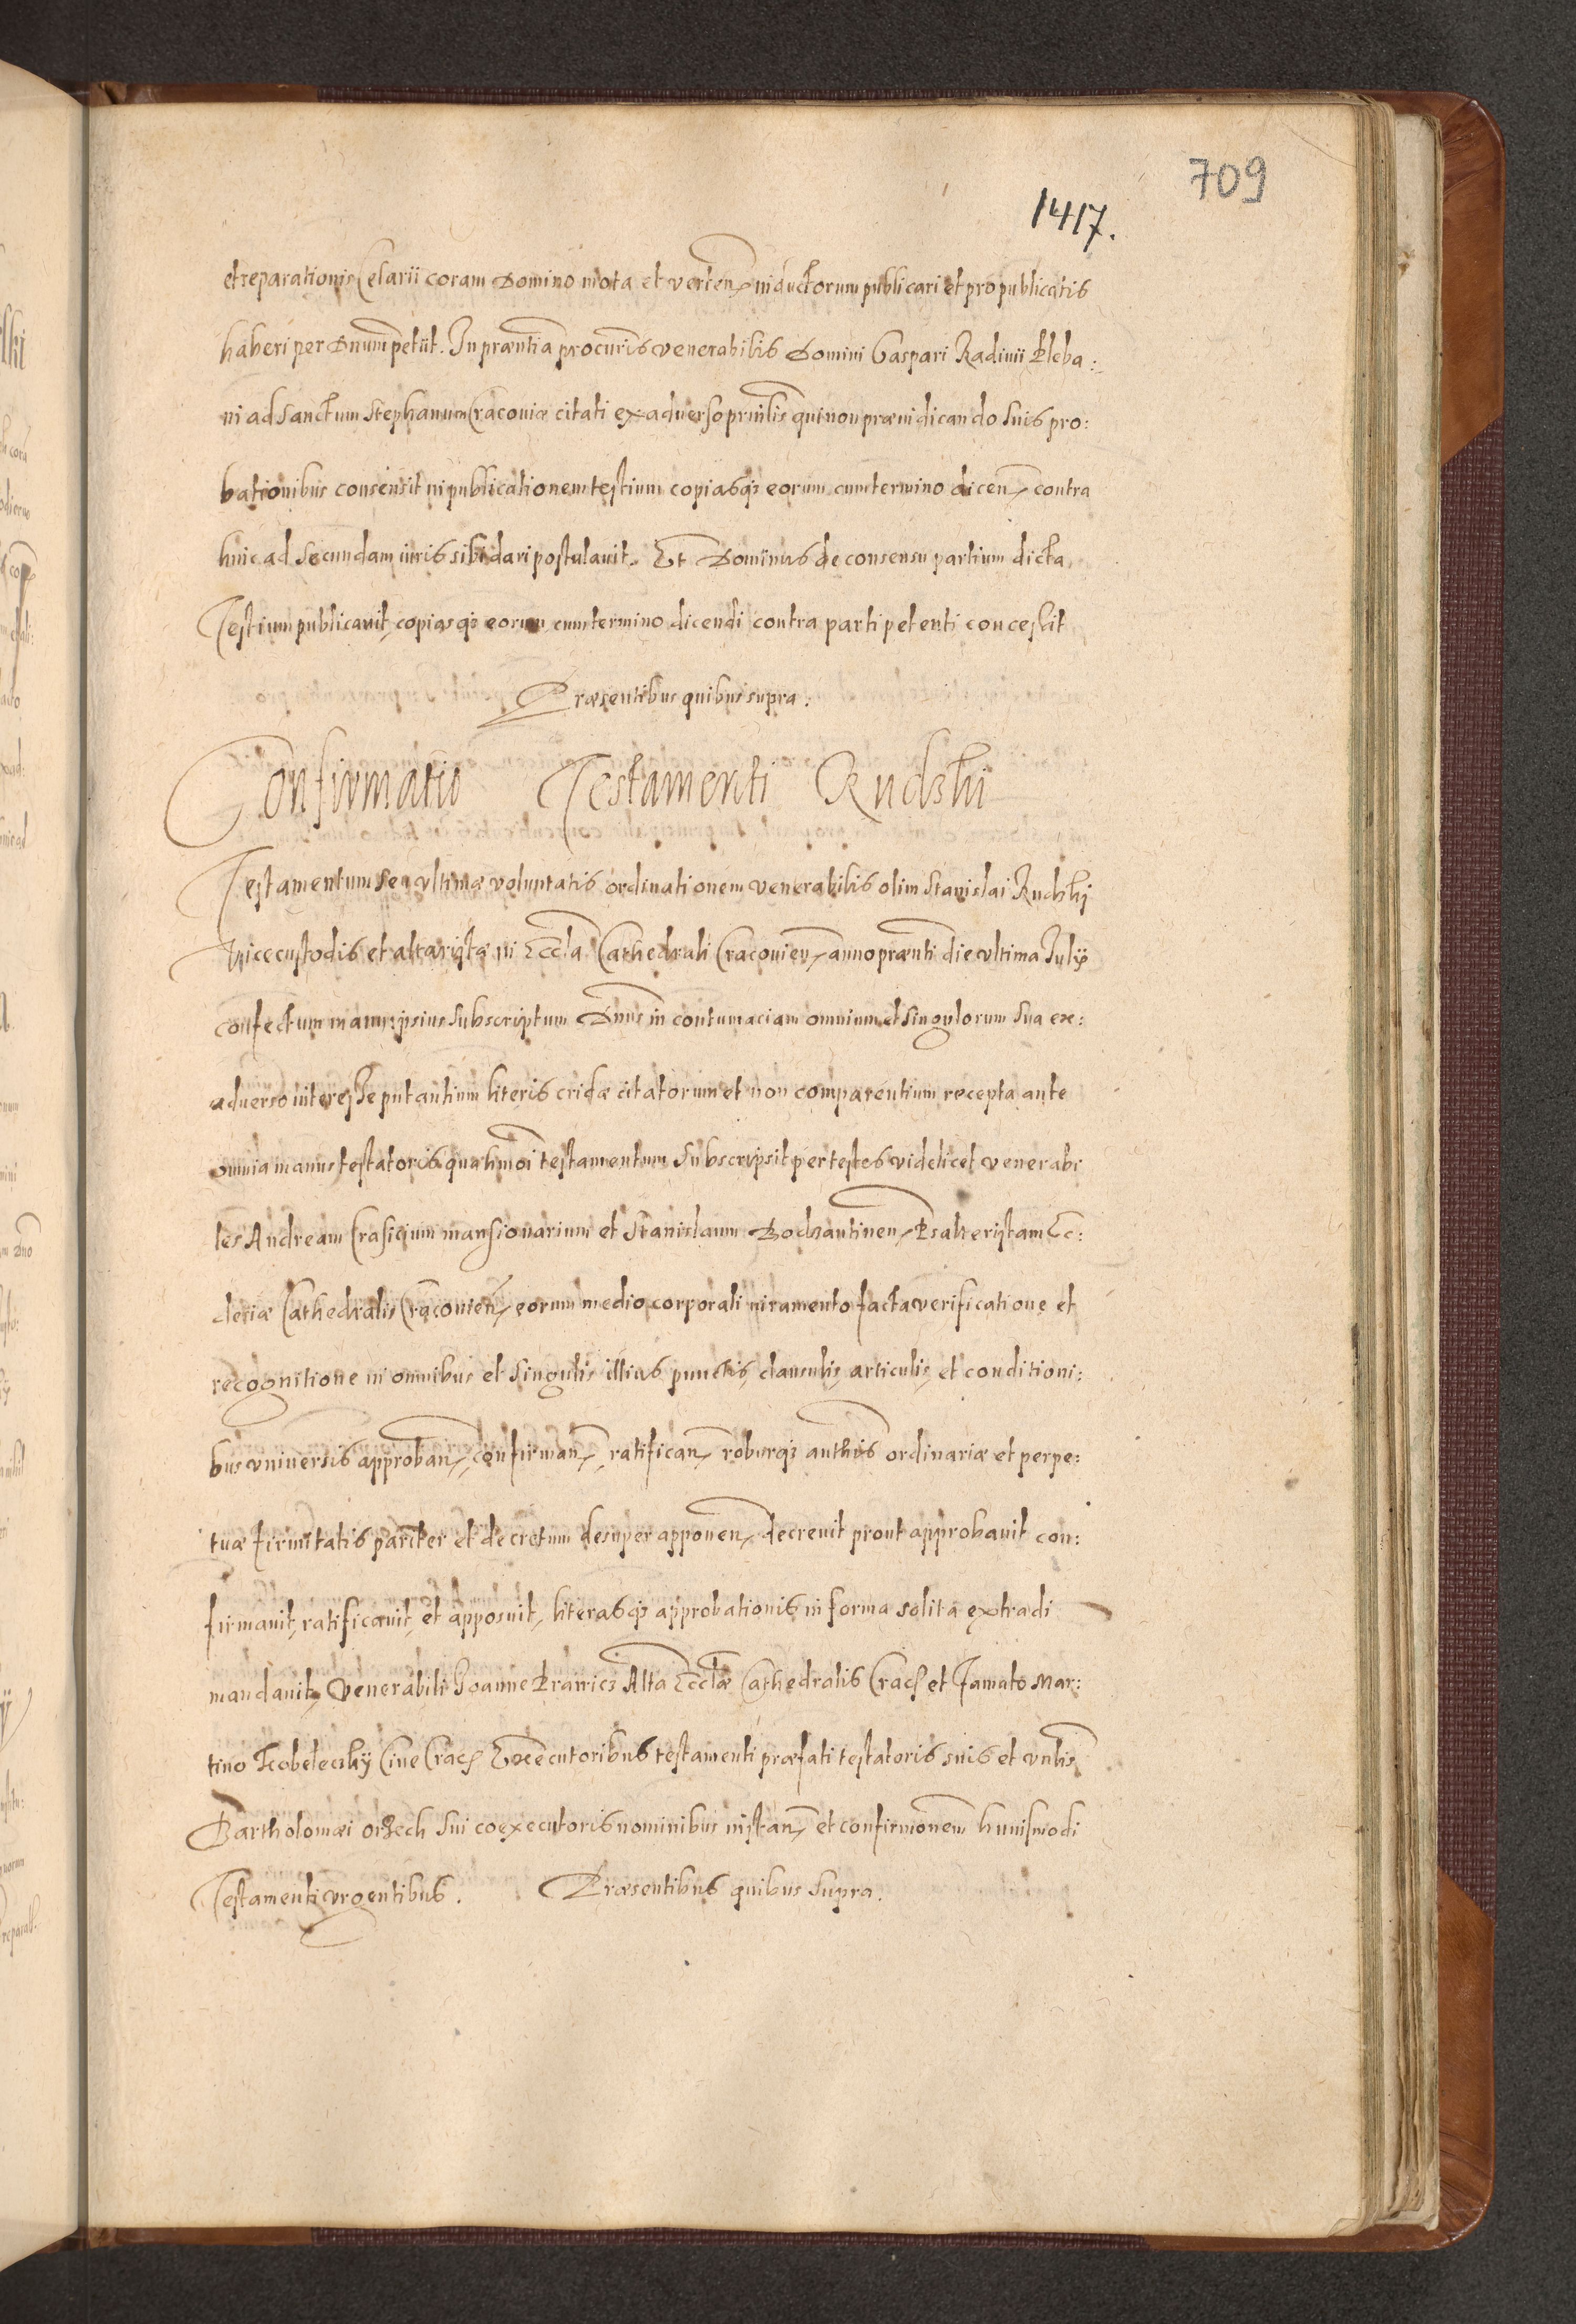 709
1417.
et reparationis Celarii coram Domino mota et verten, inductorum publicari et pro publicatis
haberi per Dnum petiit. In præntia procuris venerabilis Domini Gaspari Radinii Pleba:
ni ad Sanctum Stephanum Cracoviæ citati ex adverso prinlis qui non præiudicando suis pro:
bationibus consensit in publicationem testium copiasq; eorum cum termino dicen, contra
huic ad secundam iuris sibi dari postulavit. Et Dominus de consensu partium dicta
Testium publicavit, copiasq; eorum cum termino dicendi contra parti petenti concessit
Præsentibus quibus supra:
Confirmatio Testamenti Rudzki
Testamentum seu vltimæ voluntatis ordinationem venerabilis olim Stanislai Rudzkj
Vicecustodis et altaristæ in Eccla Cathedrali Cracovien, anno prænti die vltima Julij
confectum manu ipsius subscriptum Dnus in contumaciam omnium et singulorum sua ex:
adverso interesse putantium literis cridæ citatorum et non comparentium recepta ante
omnia manus testatoris qua hmoi testamentum subscripsit per testes videlicet venerabi
les Andream Crasicium mansionarium et Stanislaum Bodzantinen, Psalteristam Ec:
clesiæ Cathedralis Cracovien, eorum medio corporali iuramento facta verificatione et
recognitione in omnibus et singulis illius punctis, clausulis, articulis, et conditioni:
bus vniversis approban, confirman, ratifican, roburq; authis ordinariæ et perpe:
tuæ firmitatis pariter et decretum desuper apponen, decrevit prout approbauit con:
firmauit, ratificauit, et apposuit, literasq; approbationis in forma solita extradi
mandauit, Venerabili Joanne Alta Ecclæ Cathedralis Crac et famato Mar:
tino Cive Crac Executoribus testamenti præfati testatoris suis et
Bartholomæi orzech sui coexecutoris nominibus instan, et confirmonem huiusmodi
Testamenti vrgentibus. Præsentibus quibus supra.